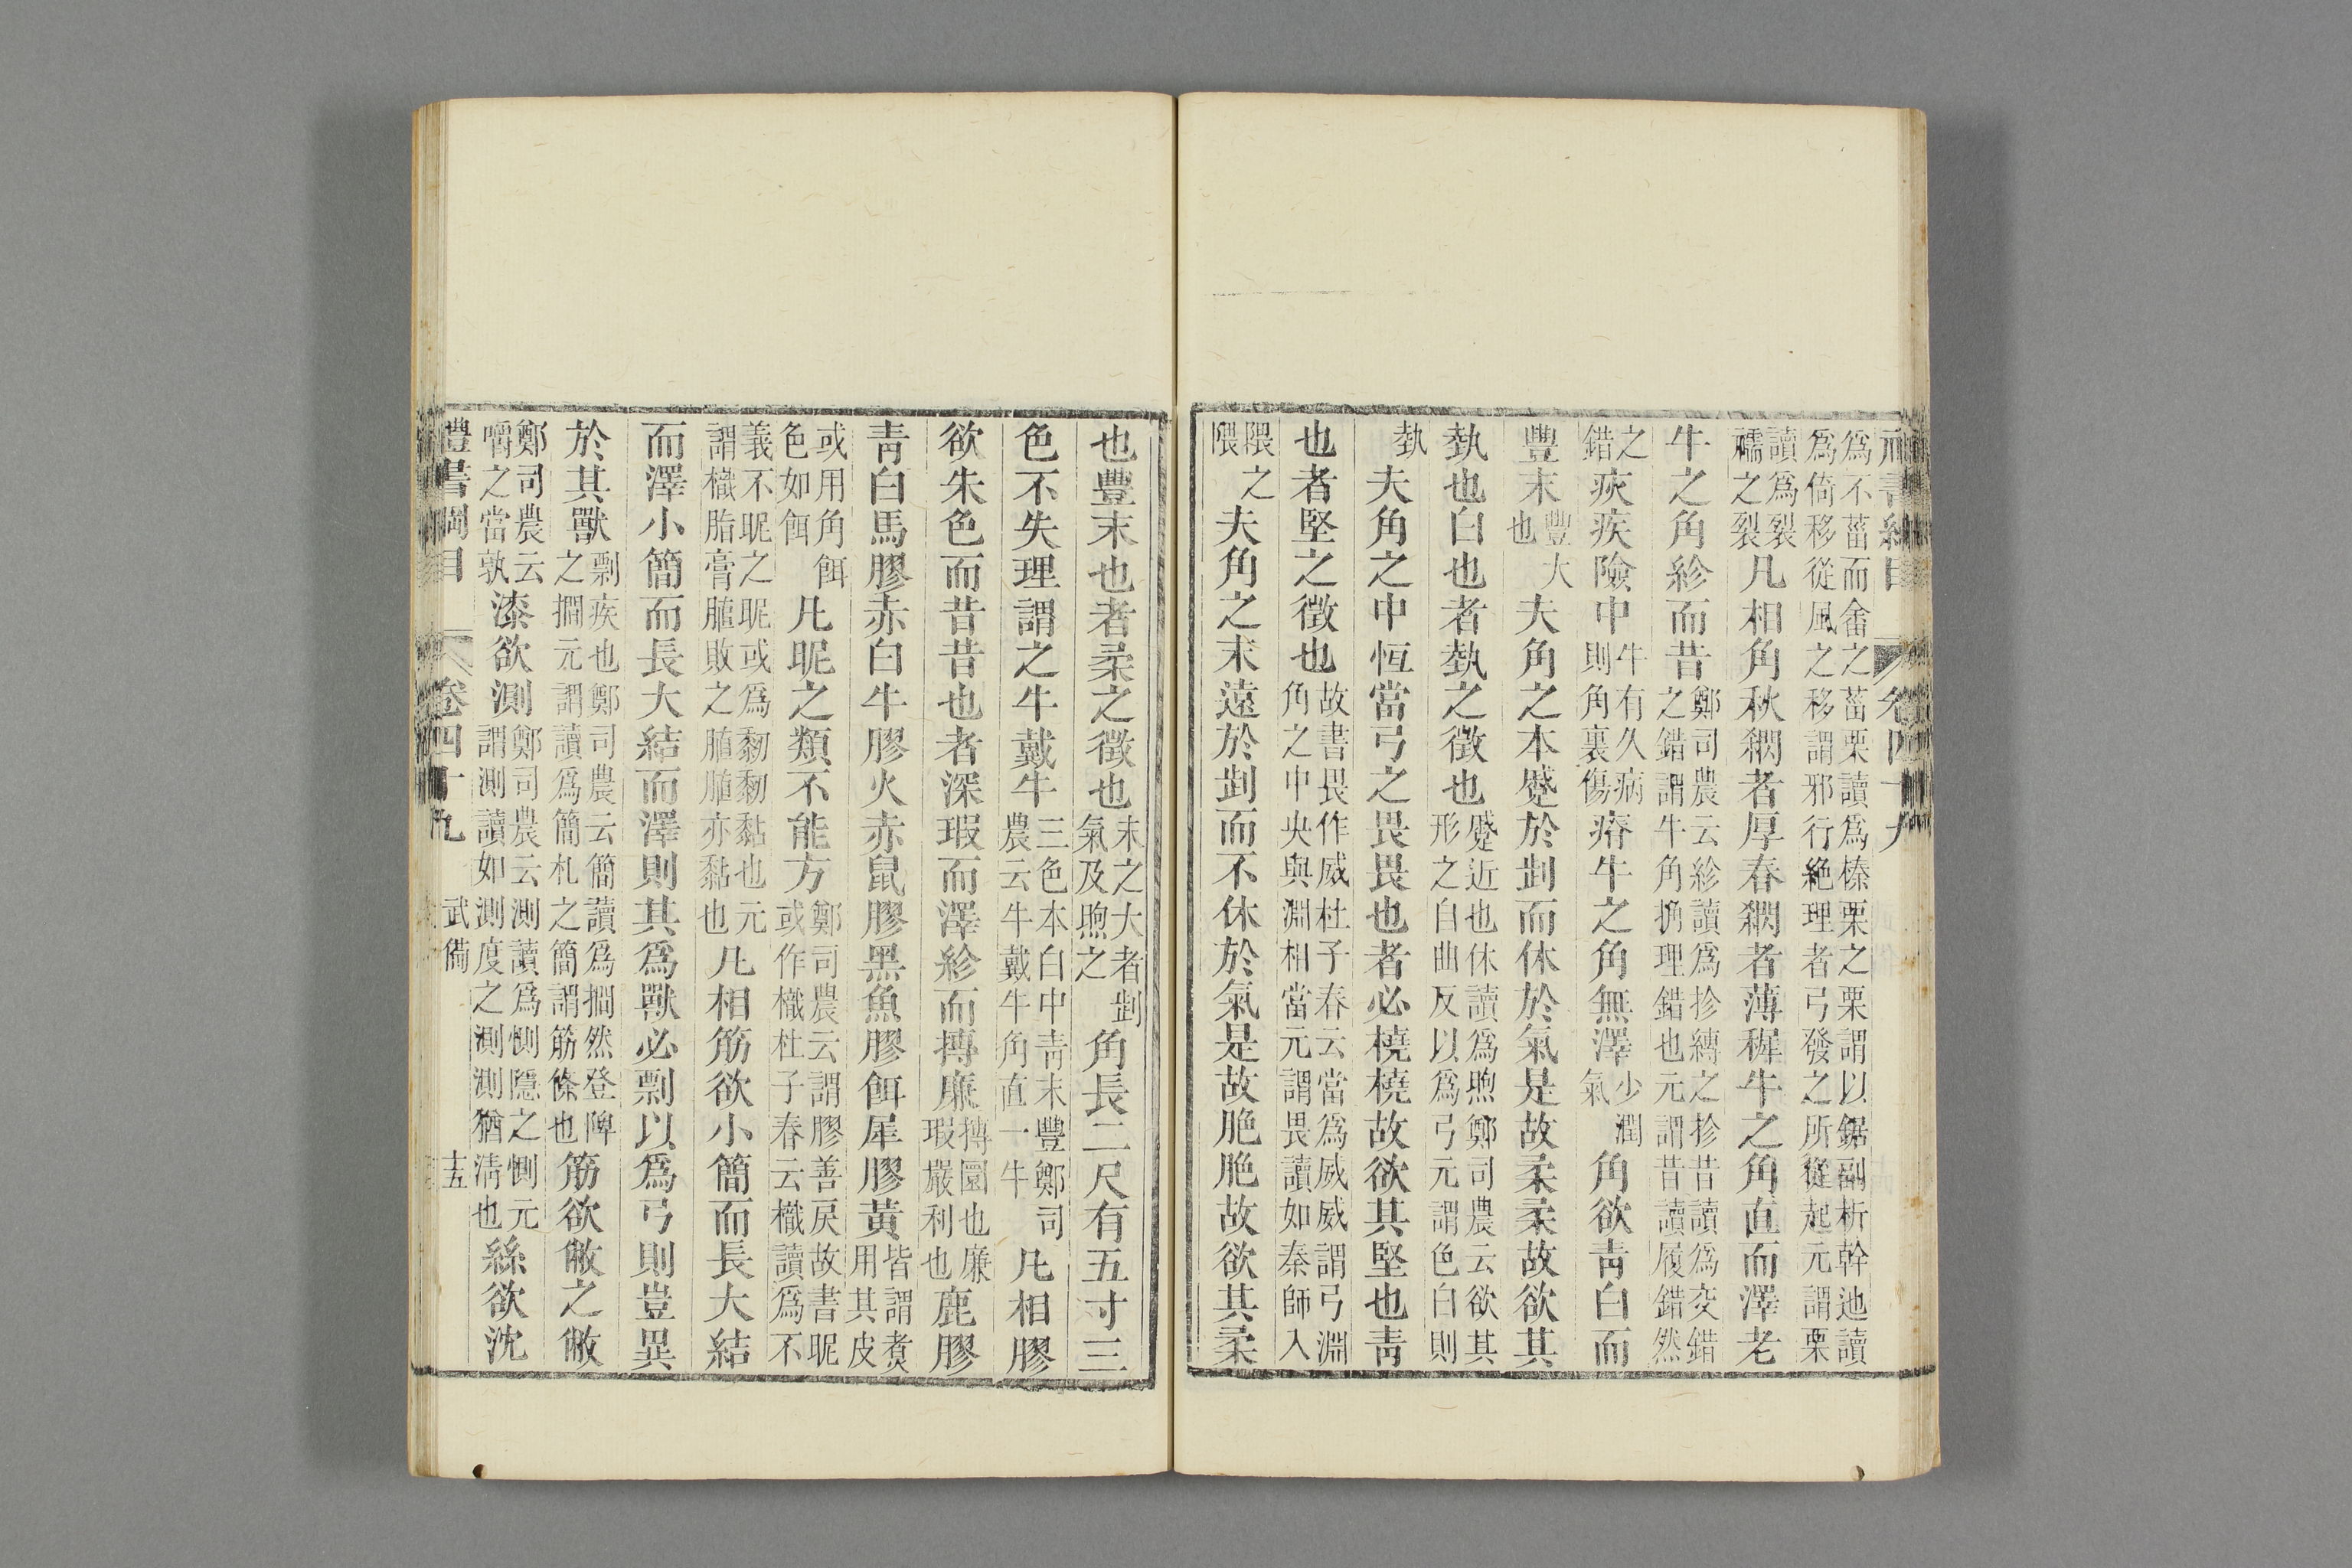 禮書綱目 卷四十九
爲不菑而畬之菑栗讀爲榛栗之栗謂以鋸副析幹迆讀
爲倚移從風之移謂邪行絶理者弓發之所從起元謂栗
讀爲裂繻之裂凡相角秋閷者厚春閷者薄穉牛之角直而澤老
牛之角紾而昔鄭司農云紾讀爲抮縛之抮昔讀爲交錯之錯謂牛角觕理錯也元謂昔讀履錯然
之錯疢疾險中牛有久病則角裏傷瘠牛之角無澤少潤氣角欲靑白而
豐末豐大也夫角之本蹙於𠜶而休於氣是故柔柔故欲其
埶也白也者埶之徵也蹙近也休讀爲煦鄭司農云欲其形之自曲反以爲弓元謂色白則
埶夫角之中恆當弓之畏畏也者必橈橈故欲其堅也靑
也者堅之徵也故書畏作威杜子春云當爲威威謂弓淵角之中央與淵相當元謂畏讀如秦師入
隈之隈夫角之末遠於𠜶而不休於氣是故脃脃故欲其柔
也豐末也者柔之徵也末之大者𠜶氣及煦之角長二尺有五寸三
色不失理謂之牛戴牛三色本白中靑末豐鄭司農云牛戴牛角直一牛凡相膠
欲朱色而昔昔也者深瑕而澤紾而摶廉摶圜也廉瑕嚴利也鹿膠
靑白馬膠赤白牛膠火赤鼠膠黑魚膠餌犀膠黃皆謂煑用其皮
或用角餌色如餌凡昵之類不能方鄭司農云謂膠善戾故書昵或作樴杜子春云樴讀爲不
義不昵之昵或爲䵒䵒黏也元謂樴脂膏䐈敗之䐈䐈亦黏也凡相筋欲小簡而長大結
而澤小簡而長大結而澤則其爲獸必剽以爲弓則豈異
於其獸剽疾也鄭司農云簡讀爲撊然登陴之撊元謂讀爲簡札之簡謂筋條也筋欲敝之敝
鄭司農云嚼之當孰漆欲測鄭司農云測讀爲惻隱之惻元謂測讀如測度之測測猶淸也絲欲沈
禮書綱目 卷四十九 武備 十五